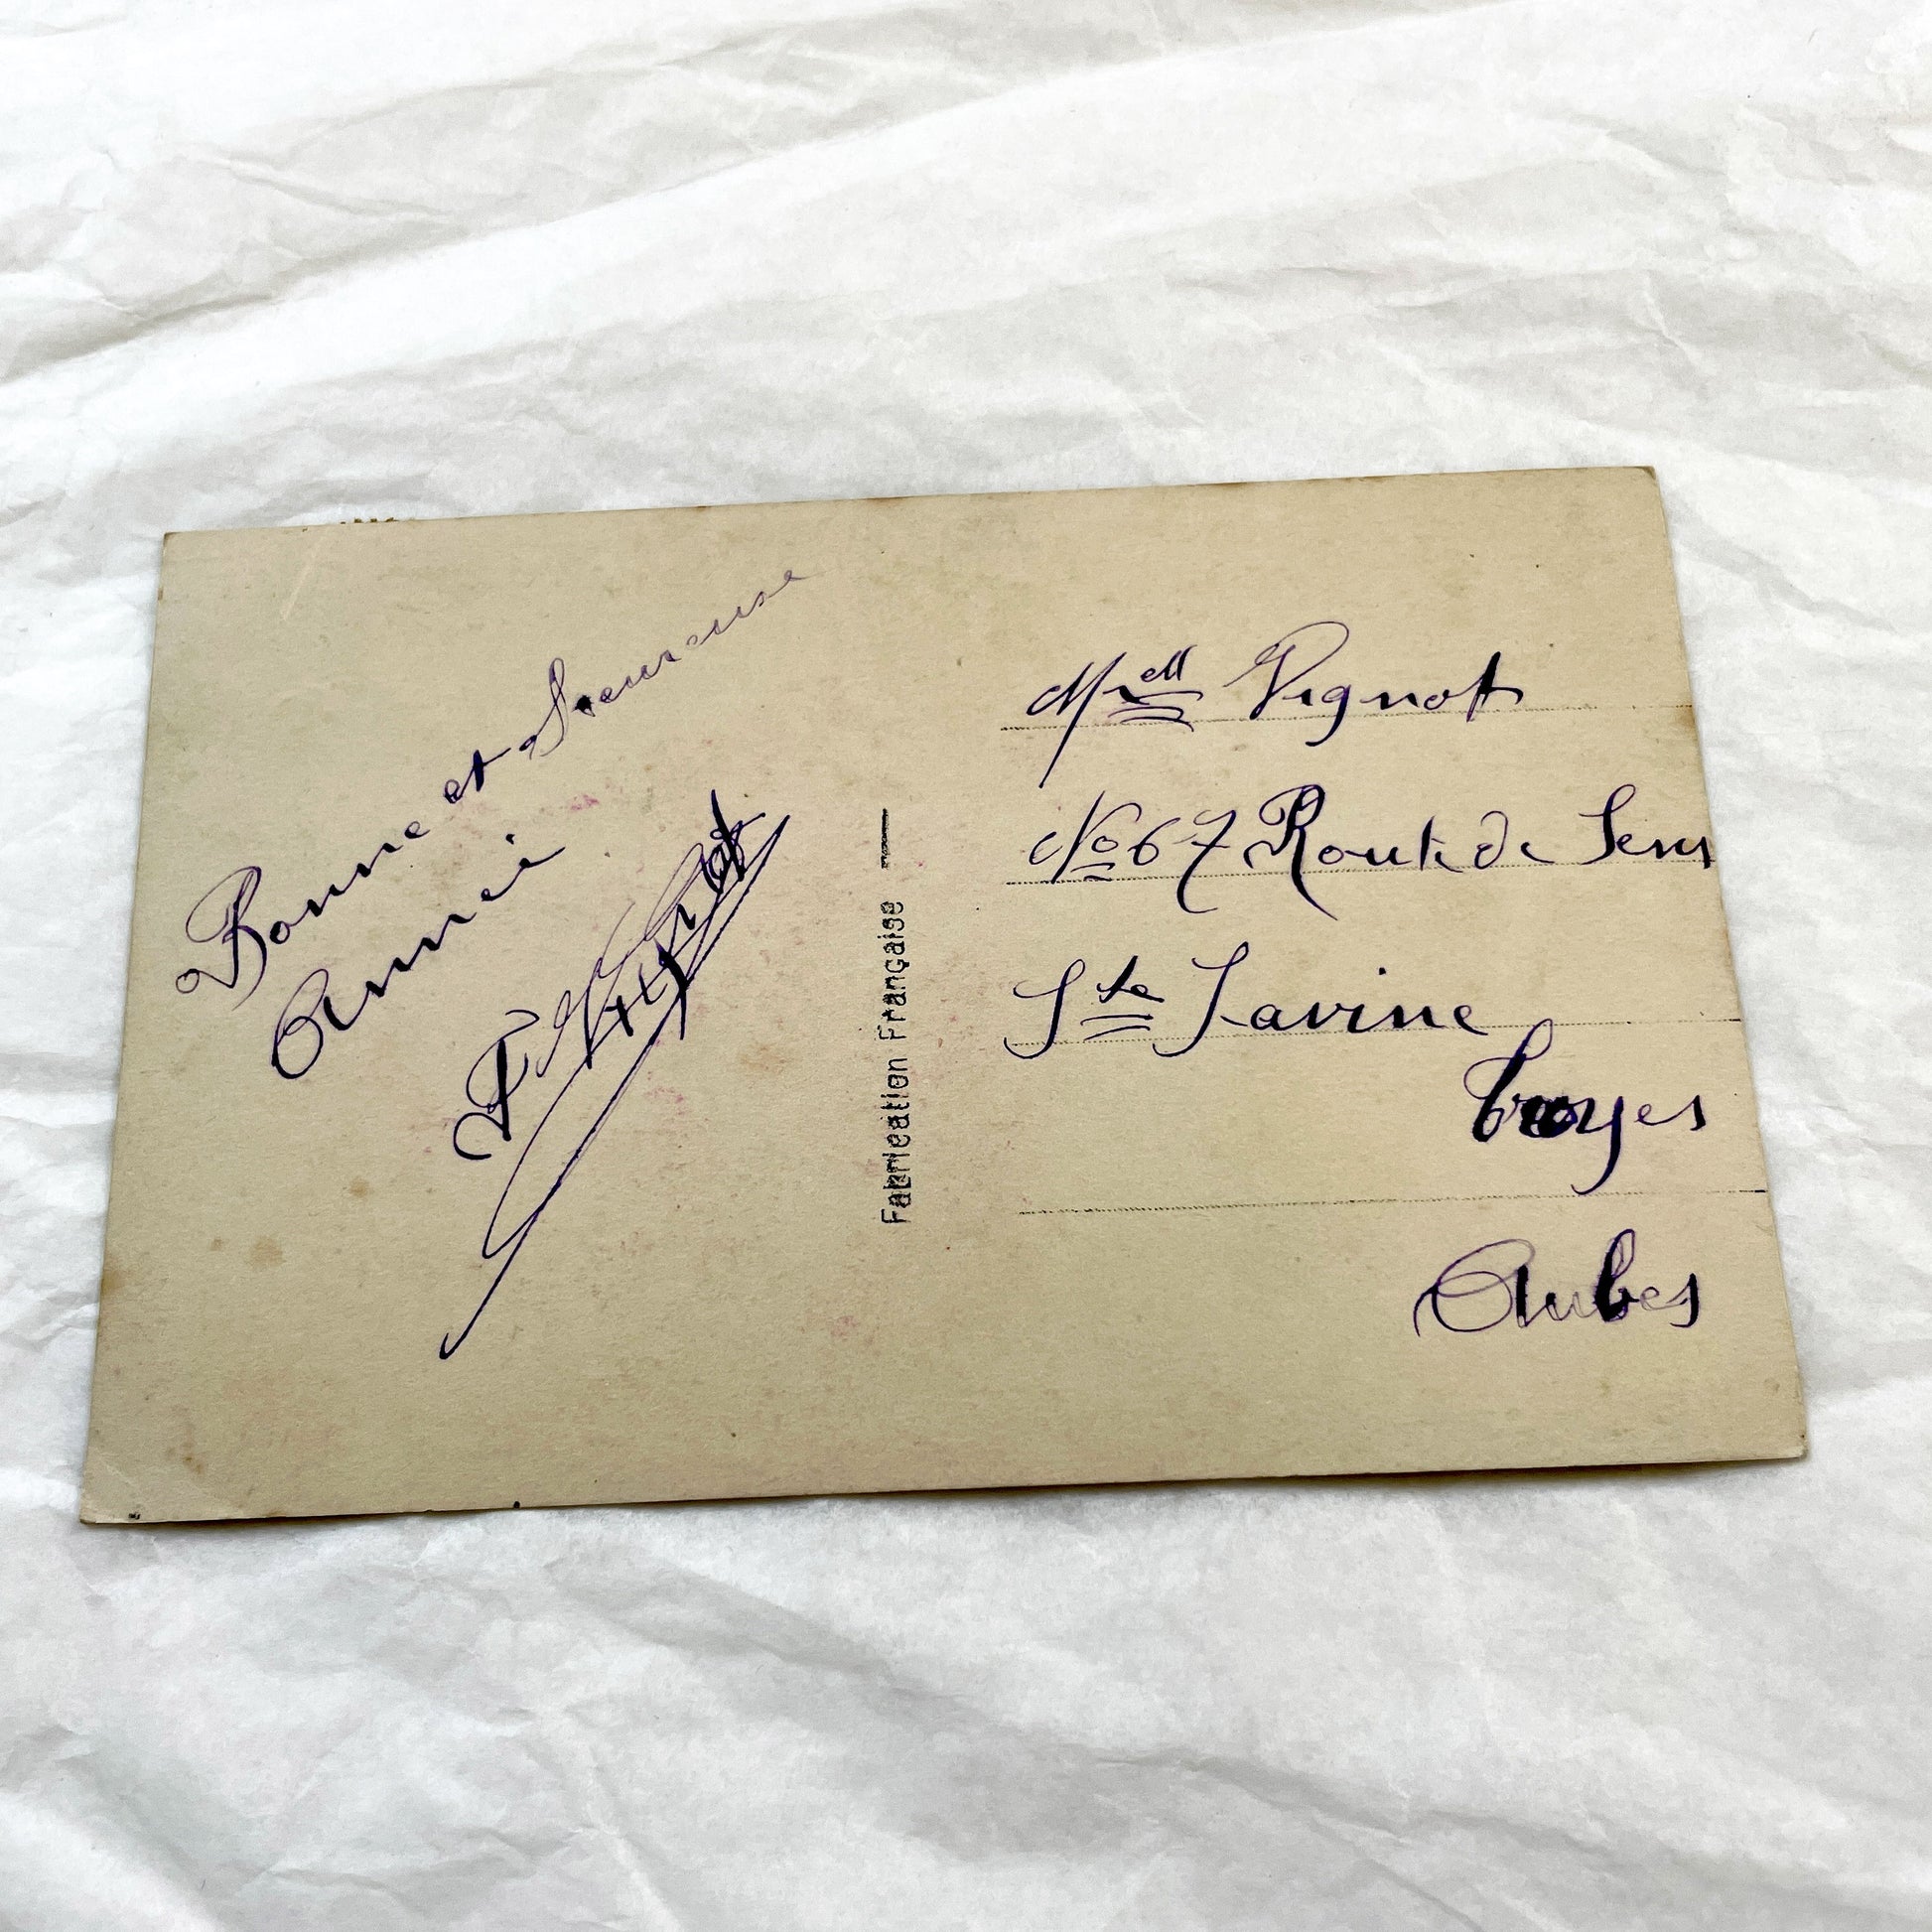 Bonne et Heureuse
Année
Fabrication Française
Melle Vignot
No 67 Route de Sens
Ste Savine
Troyes
Aubes